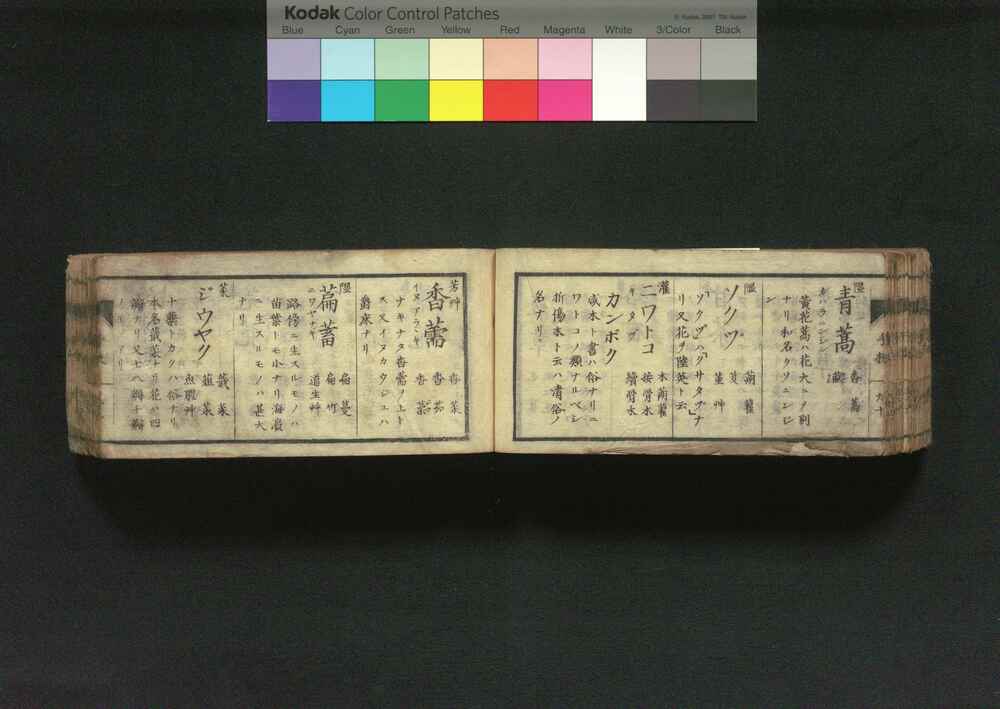 Kodak Color Control Patches
Blue Cyan Green Yellow Red Magenta White 3/Color Black
隰
青蒿
香蒿
黄花蒿ハ花大ニメ別
ナリ和名クソニンジ
ン
隰
ソクヅ
蒴藋
芨
菫艸
ソクヅハクサタヅナ
リ又花ヲ陸英ト云
灌
ニワトコ
キタヅ
木蒴藋
接骨木
續骨木
カンボク
或木ト書ハ俗ナリニ
ワトコノ類ナルベシ
折傷木ト云ハ清俗ノ
名ナリ
芳艸
香薷
イヌアラヽギ
香菜
香茹
ナギナタ香薷ノ上ト
ス又イヌカウジユハ
爵床ナリ
隰
萹蓄
ニワヤナギ
扁蔓
扁竹
道生艸
路傍ニ生スルモノハ
苗葉トモ小ナリ海濵
ニ生スルモノハ甚大
ナリ
菜
ジウヤク
蕺菜
葅菜
魚腥艸
十藥トカクハ俗ナリ
本名蕺菜ナリ花ハ四
瓣ナリ又七八瓣千瓣
ノモノアリ